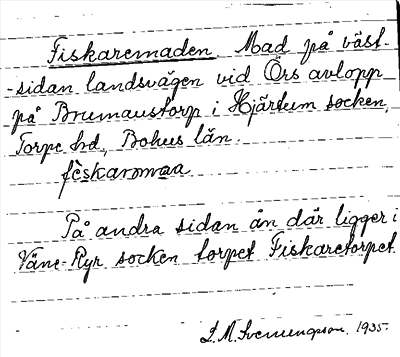 Fiskaremaden Mad på väst-
-sidan landsvägen vid Örs avlopp
på Brumaustorp i Hjärtum socken,
Torpe hd, Bohus län.
feskaromaa
På andra sidan ån där ligger i
Väne-Ryr socken torpet Fiskaretorpet.
L.M. Svenungsson. 1935.